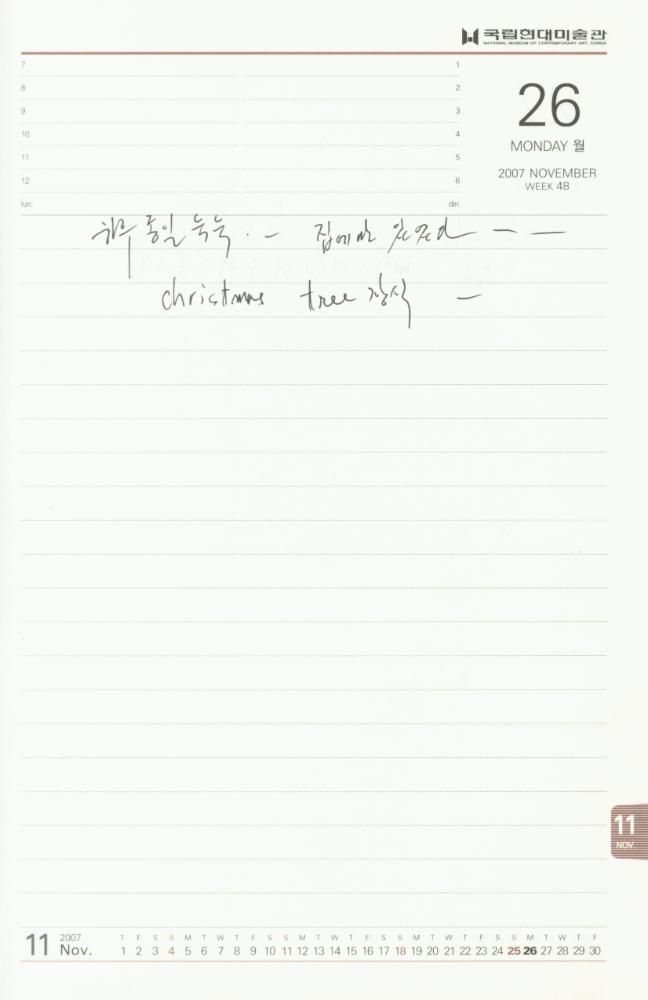 국립현대미술관
NATIONAL MUSEUM OF CONTEMPORARY ART, KOREA
7 1
8 2
9 3
10 4
11 5
12 6
lun. din.
26
MONDAY 월
2007 NOVEMBER
WEEK 48
하루 종일 눅눅 . – 집에만 있었다 — —
christmas tree 장식 —
11
NOV.
11 2007 Nov.
T F S S M T W T F S S M T W T F S S M T W T F S S M T W T F
1 2 3 4 5 6 7 8 9 10 11 12 13 14 15 16 17 18 19 20 21 22 23 24 25 26 27 28 29 30